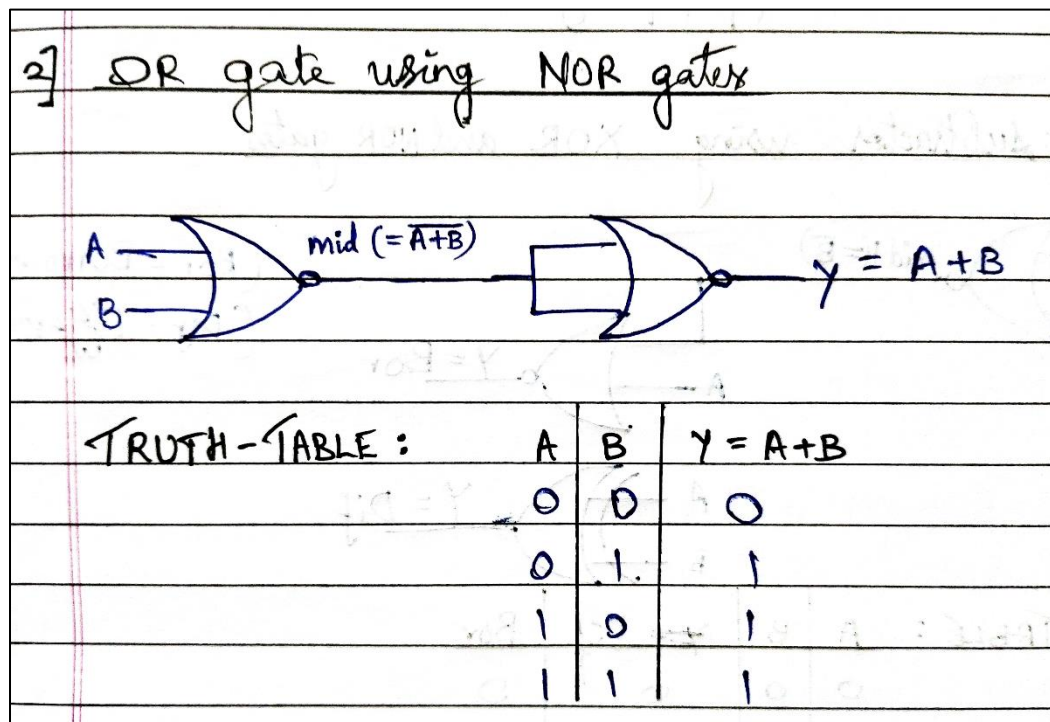 2] OR gate using NOR gates
A mid (=\overline{A+B}) Y = A+B
B
TRUTH-TABLE : A B Y = A+B
0 0 0
0 1 1
1 0 1
1 1 1